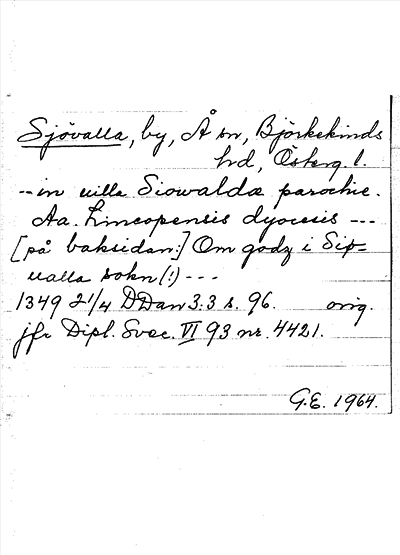 Sjövalla, by, Å sn, Björkekinds
hd, Österg. l.
-- in uilla Siowalda parochie.
Aa. Lincopensis dyocesis ---
[på baksidan:] Om godz i Sip=
ualla sokn (!) ---
1349 21/4 DDan 3:3 s. 96. orig.
jfr Dipl. Svec. VI 93 nr. 4421.
G.E. 1964.